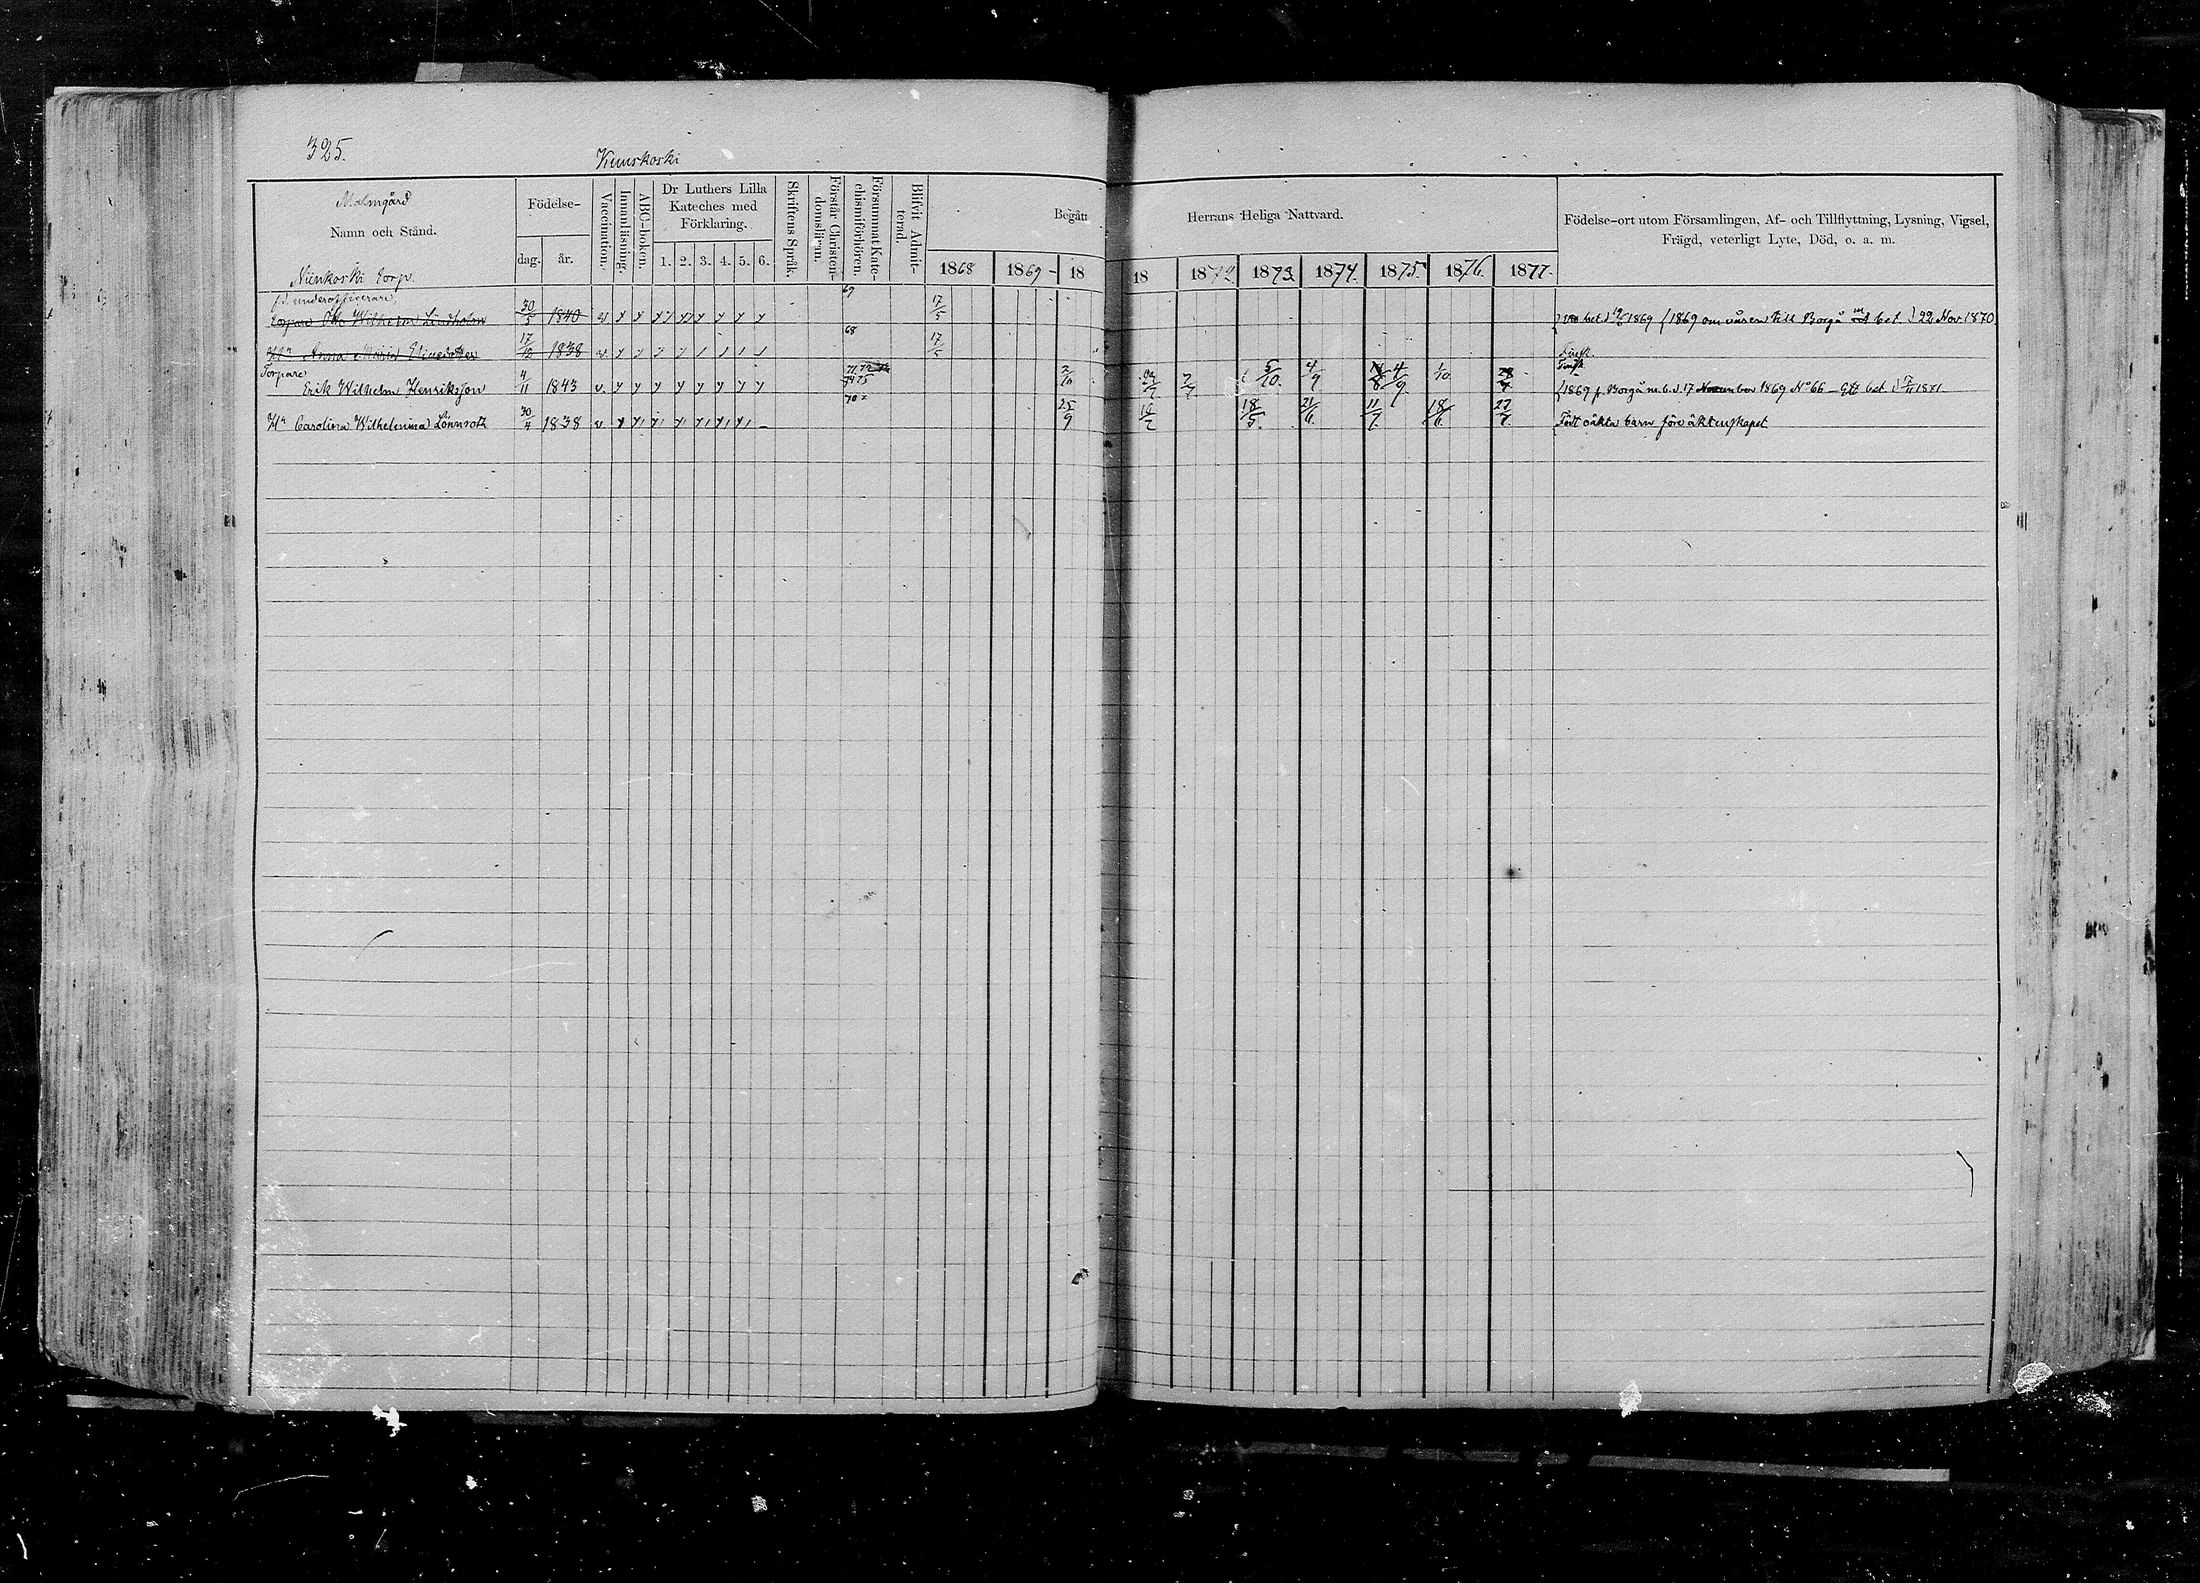 325.
Kuuskoski
Malmgård
Namn och Stånd.
Födelse-
dag.
år.
Vaccination.
Innanläsning.
ABC-boken.
Dr Luthers Lilla
Kateches med
Förklaring.
1. 2. 3. 4. 5. 6.
Skriftens Språk.
Förstår Christen-
domsläran.
Försummat Kate-
chismiförhören.
Blifvit Admit-
terad.
Begått
Herrans Heliga Nattvard.
1868 1869 18
18 1872 1873 1874. 1875. 1876. 1877.
Födelse-ort utom Församlingen, Af- och Tillflyttning, Lysning, Vigsel,
Frägd, veterligt Lyte, Död, o. a. m.
Niinkoski torp.
f.d. underofficeraren,
69
Torpare Otto Wilhelm Lindholm 30/5 1840 v y y y y y y y y 17/5 bet. 1869 (1869 om våren till Borgå bet. d 22 Nov 1870
68
Hn Anna Maria Eliedotter 17/12 1838 v 17/5
Finsk.
Torpare
Erik Wilhelm Henriksson 4/11 1843 v. y y y y y y y y 5/10. 4/9 4/9. 1/10. 1869 fr. Borgå m. b. d. 17 November 1869 No 66 bet. 1871
Hn Carolina Wilhelmina Lönnroth 30/4 1838 v 25/9 18/5. 21/6. 11/7. 18/6. 27/7. Födt oäkta barn före äktenskapet